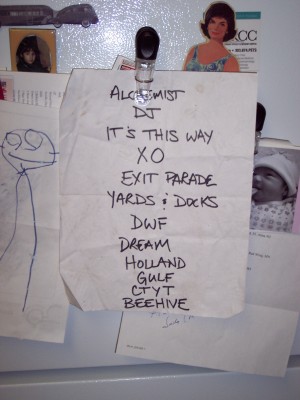 ALCHEMIST
DJ
IT'S THIS WAY
XO
EXIT PARADE
YARDS & DOCKS
DWF
DREAM
HOLLAND
GULF
CTYT
BEEHIVE